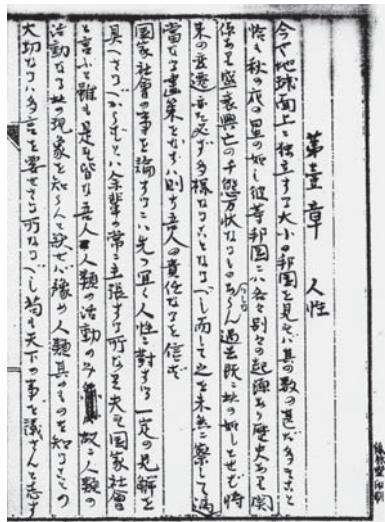 第壹章 人性
今や地球面上に独立する大小の邦国を見るに其の数の甚だ多きこと
恰も秋の夜の星の如し彼等邦国には各々別々の起源あり歴史あり関
係あり盛衰興亡の千態万状なるものあらん過去既に此の如しとせば将
来の変遷亦た必ず多様なることなるべし而して之を未然に察して適
当なる画策をなすは則ち吾人の責任なるを信ず
国家社会の事を論ずるには先づ宜く人性に対する一定の見解を
具へざるべからずとは余輩の常に主張する所なり夫れ国家社会
と言ふと雖も是れ皆な吾人人類の活動のみ 故に人類の
活動なる此の現象を知らんと欲せば予め人類其のものを知ることの
大切なるは多言を要せざる所なるべし苟も天下の事を議せんと志す